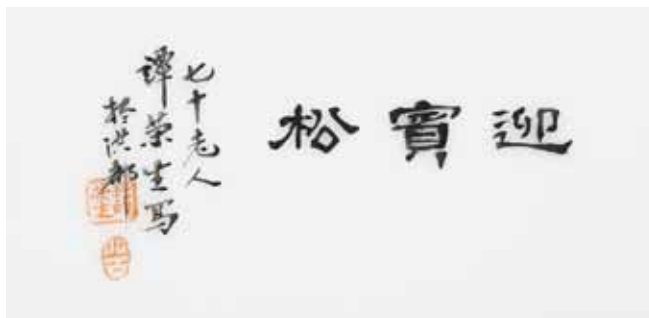 迎賓松
七十老人
譚荣生写
於洪都